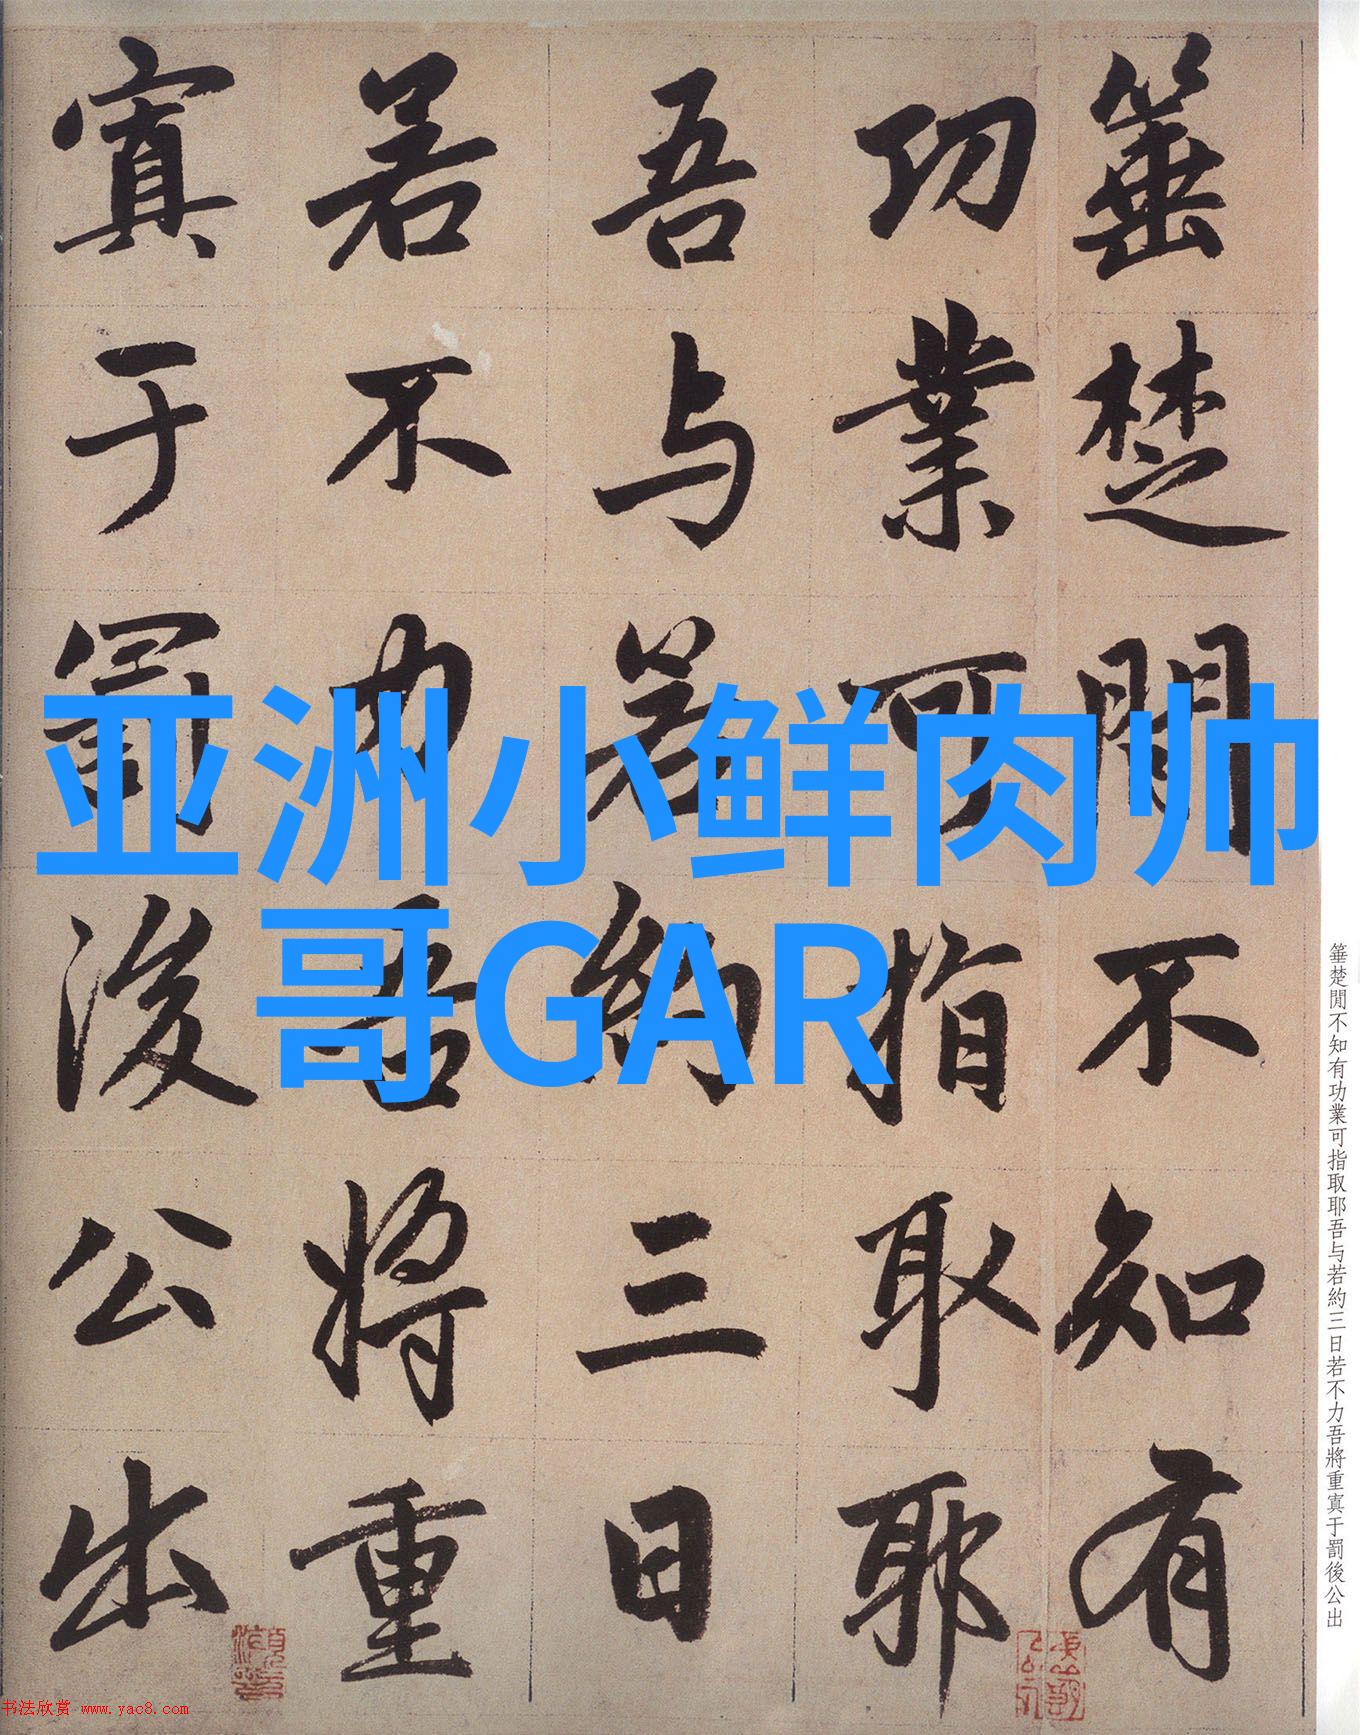 箠楚閒不知有
功業可指取耶
吾与若約三日
若不力吾將重
寘于罰後公出
亚洲小鲜肉帅
哥GAR
箠楚閒不知有功業可指取耶吾与若約三日若不力吾將重寘于罰後公出
书法欣赏 www.yac8.com